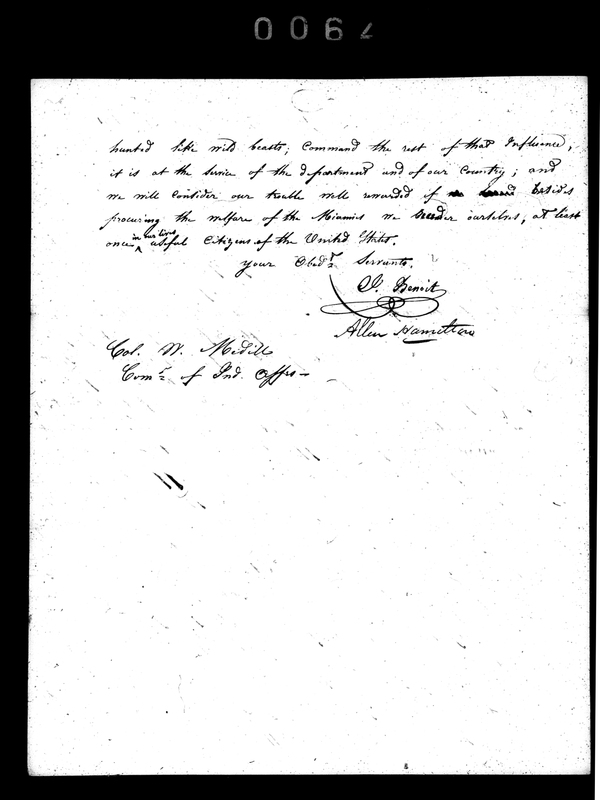 0067
hunted like wild beasts; Command the rest of that Influence,
it is at the service of the department and of our Country; and
we will consider our trouble well rewarded if besides
procuring the welfare of the Miamies we render ourselves, at least
once in our lives useful Citizens of the United States.
Your Obedt Servants.
J. Benoit
Allen Hamilton
Col. W. Medill
Comr of Ind. Affrs